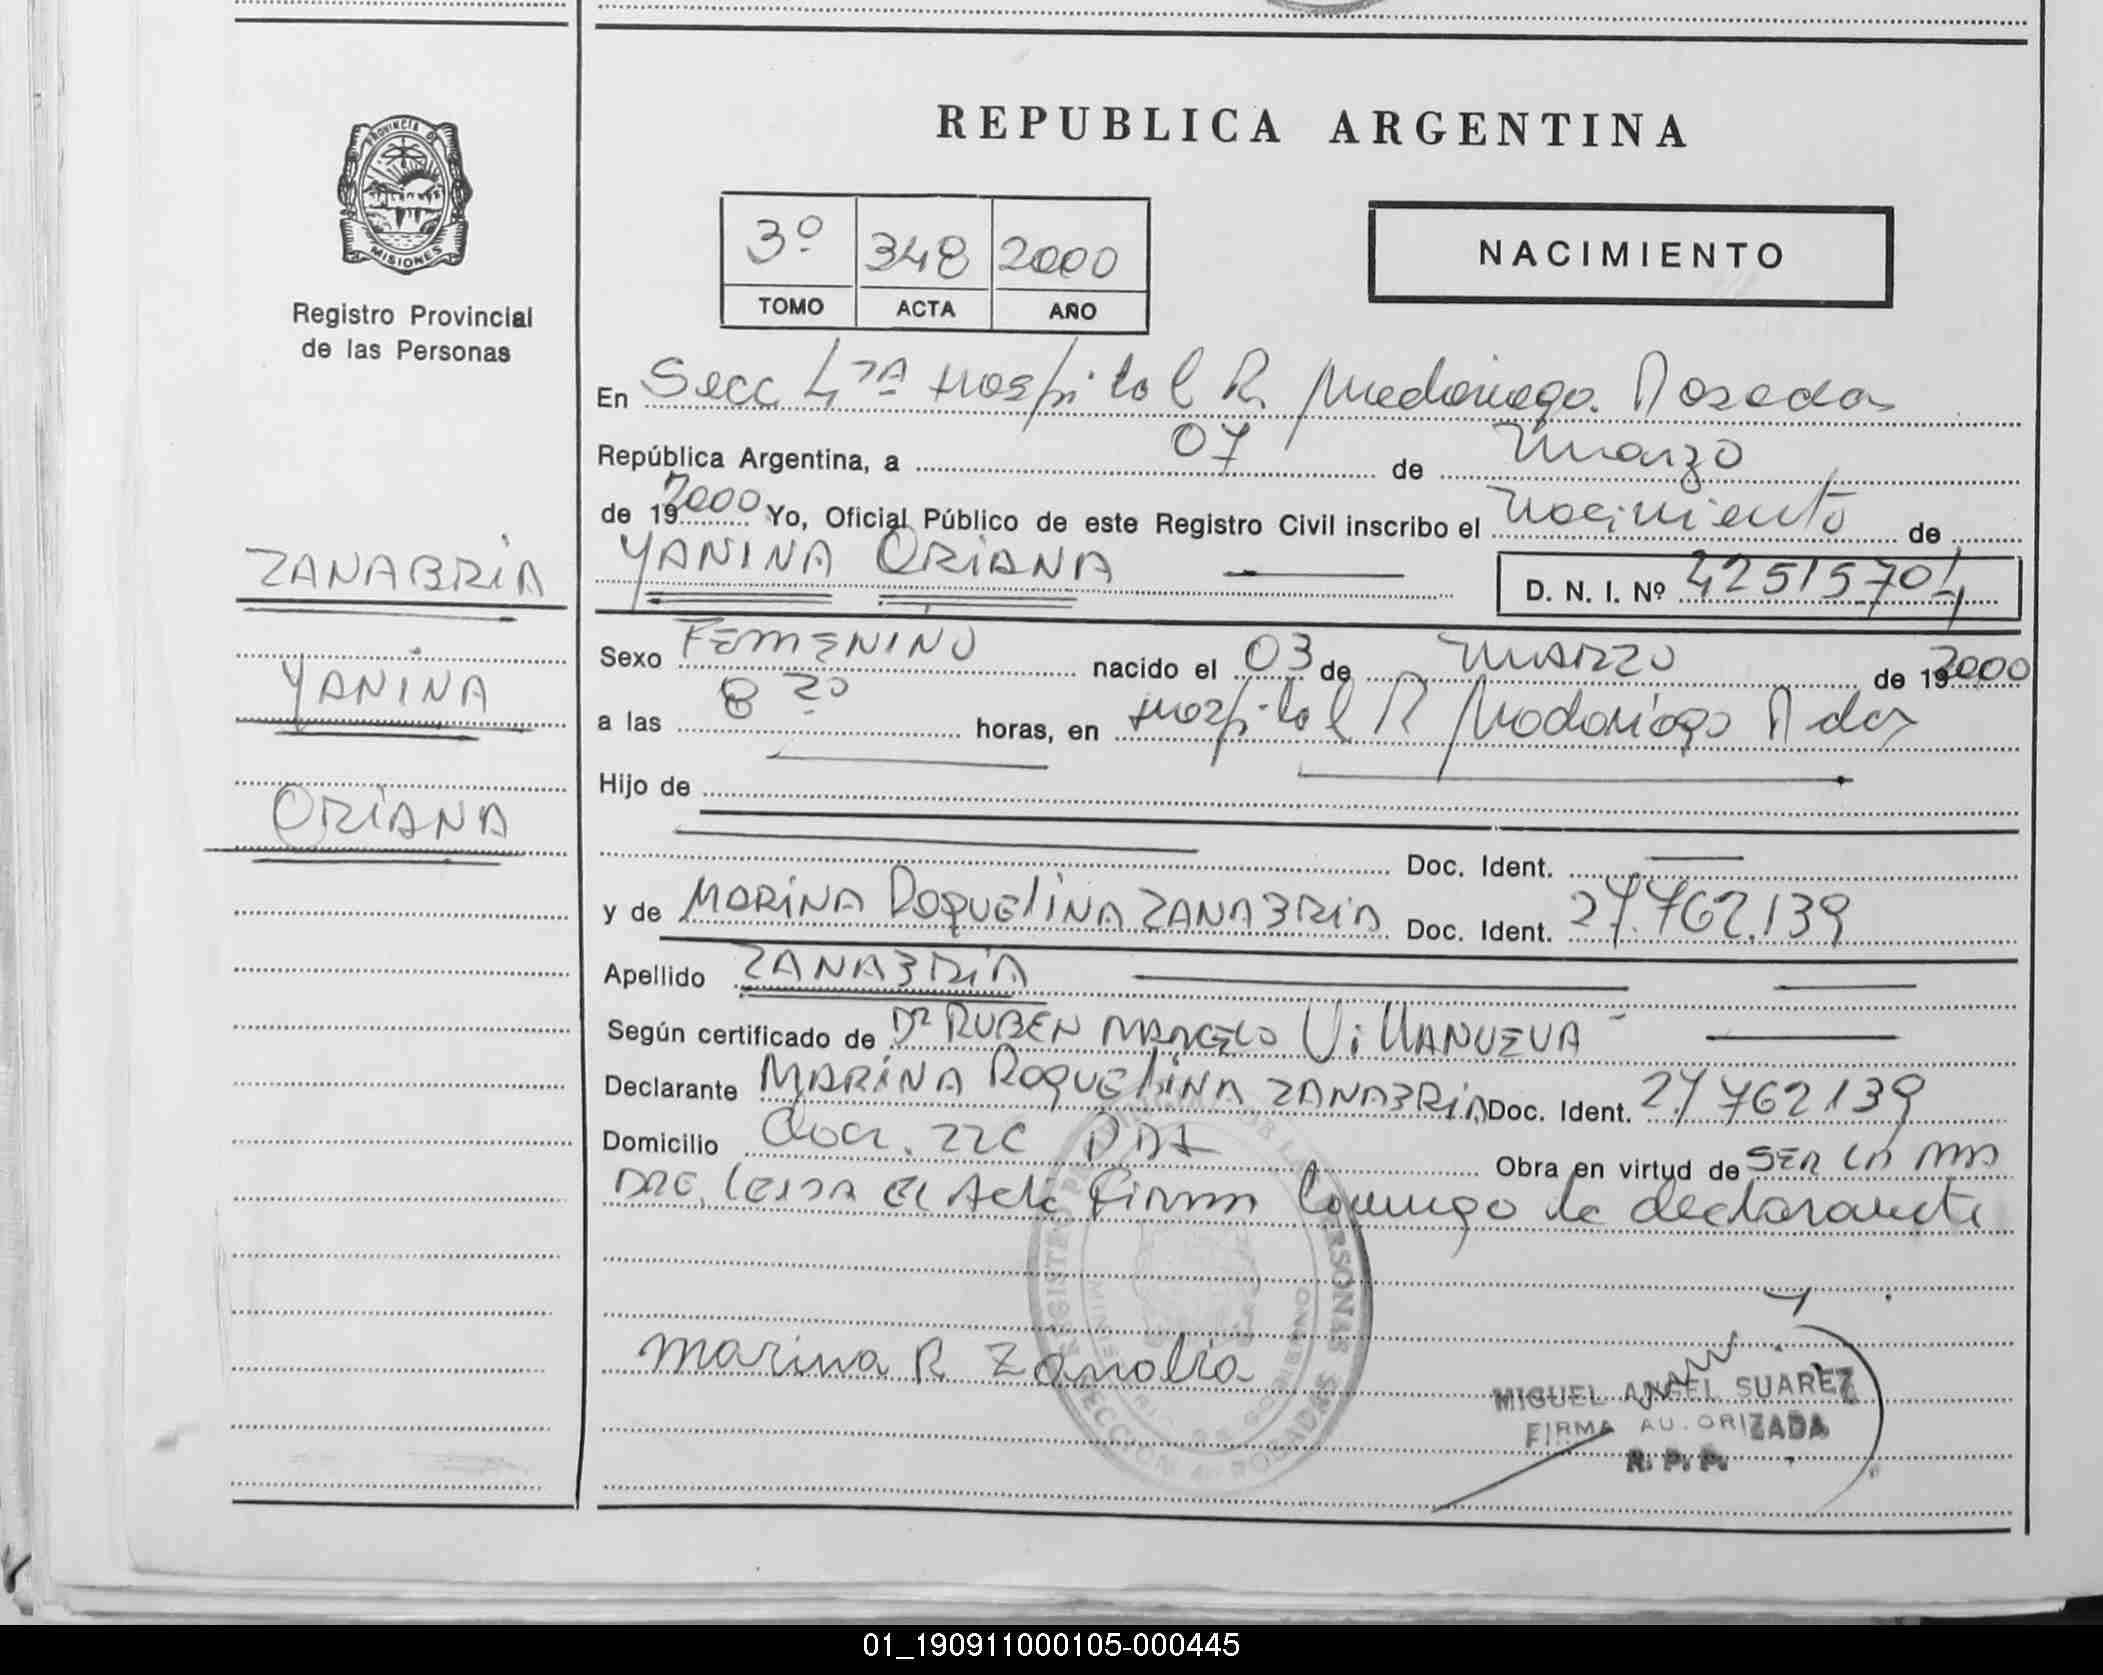 REPUBLICA ARGENTINA
PROVINCIA DE
MISIONES
Registro Provincial
de las Personas
3º 348 2000
TOMO ACTA AÑO
NACIMIENTO
En Secc 4ta Hospital R. Madariaga. Posadas
República Argentina, a 07 de Marzo
de 192000 Yo, Oficial Público de este Registro Civil inscribo el Nacimiento de
YANINA ORIANA D. N. I. Nº 42515704
ZANABRIA
YANINA
ORIANA
Sexo FEMENINO nacido el 03 de MARZO de 192000
a las 8 horas, en Hospital R Madariaga Pdas
Hijo de
Doc. Ident.
y de MARINA ROQUELINA ZANABRIA Doc. Ident. 27.762.139
Apellido ZANABRIA
Según certificado de Dr RUBEN MARCELO VILLANUEVA
Declarante MARINA ROQUELINA ZANABRIA Doc. Ident. 27762139
Domicilio Obra en virtud de SER LA MA
DRE. Leida el Acta firma Conmigo la declarante
Marina R Zanabria
REGISTRO PROVINCIAL DE LAS PERSONAS
MINISTERIO DE GOBIERNO
SECCION 4ª POSADAS
MIGUEL ANGEL SUAREZ
FIRMA AU.ORIZADA
R. P. P.
01_190911000105-000445